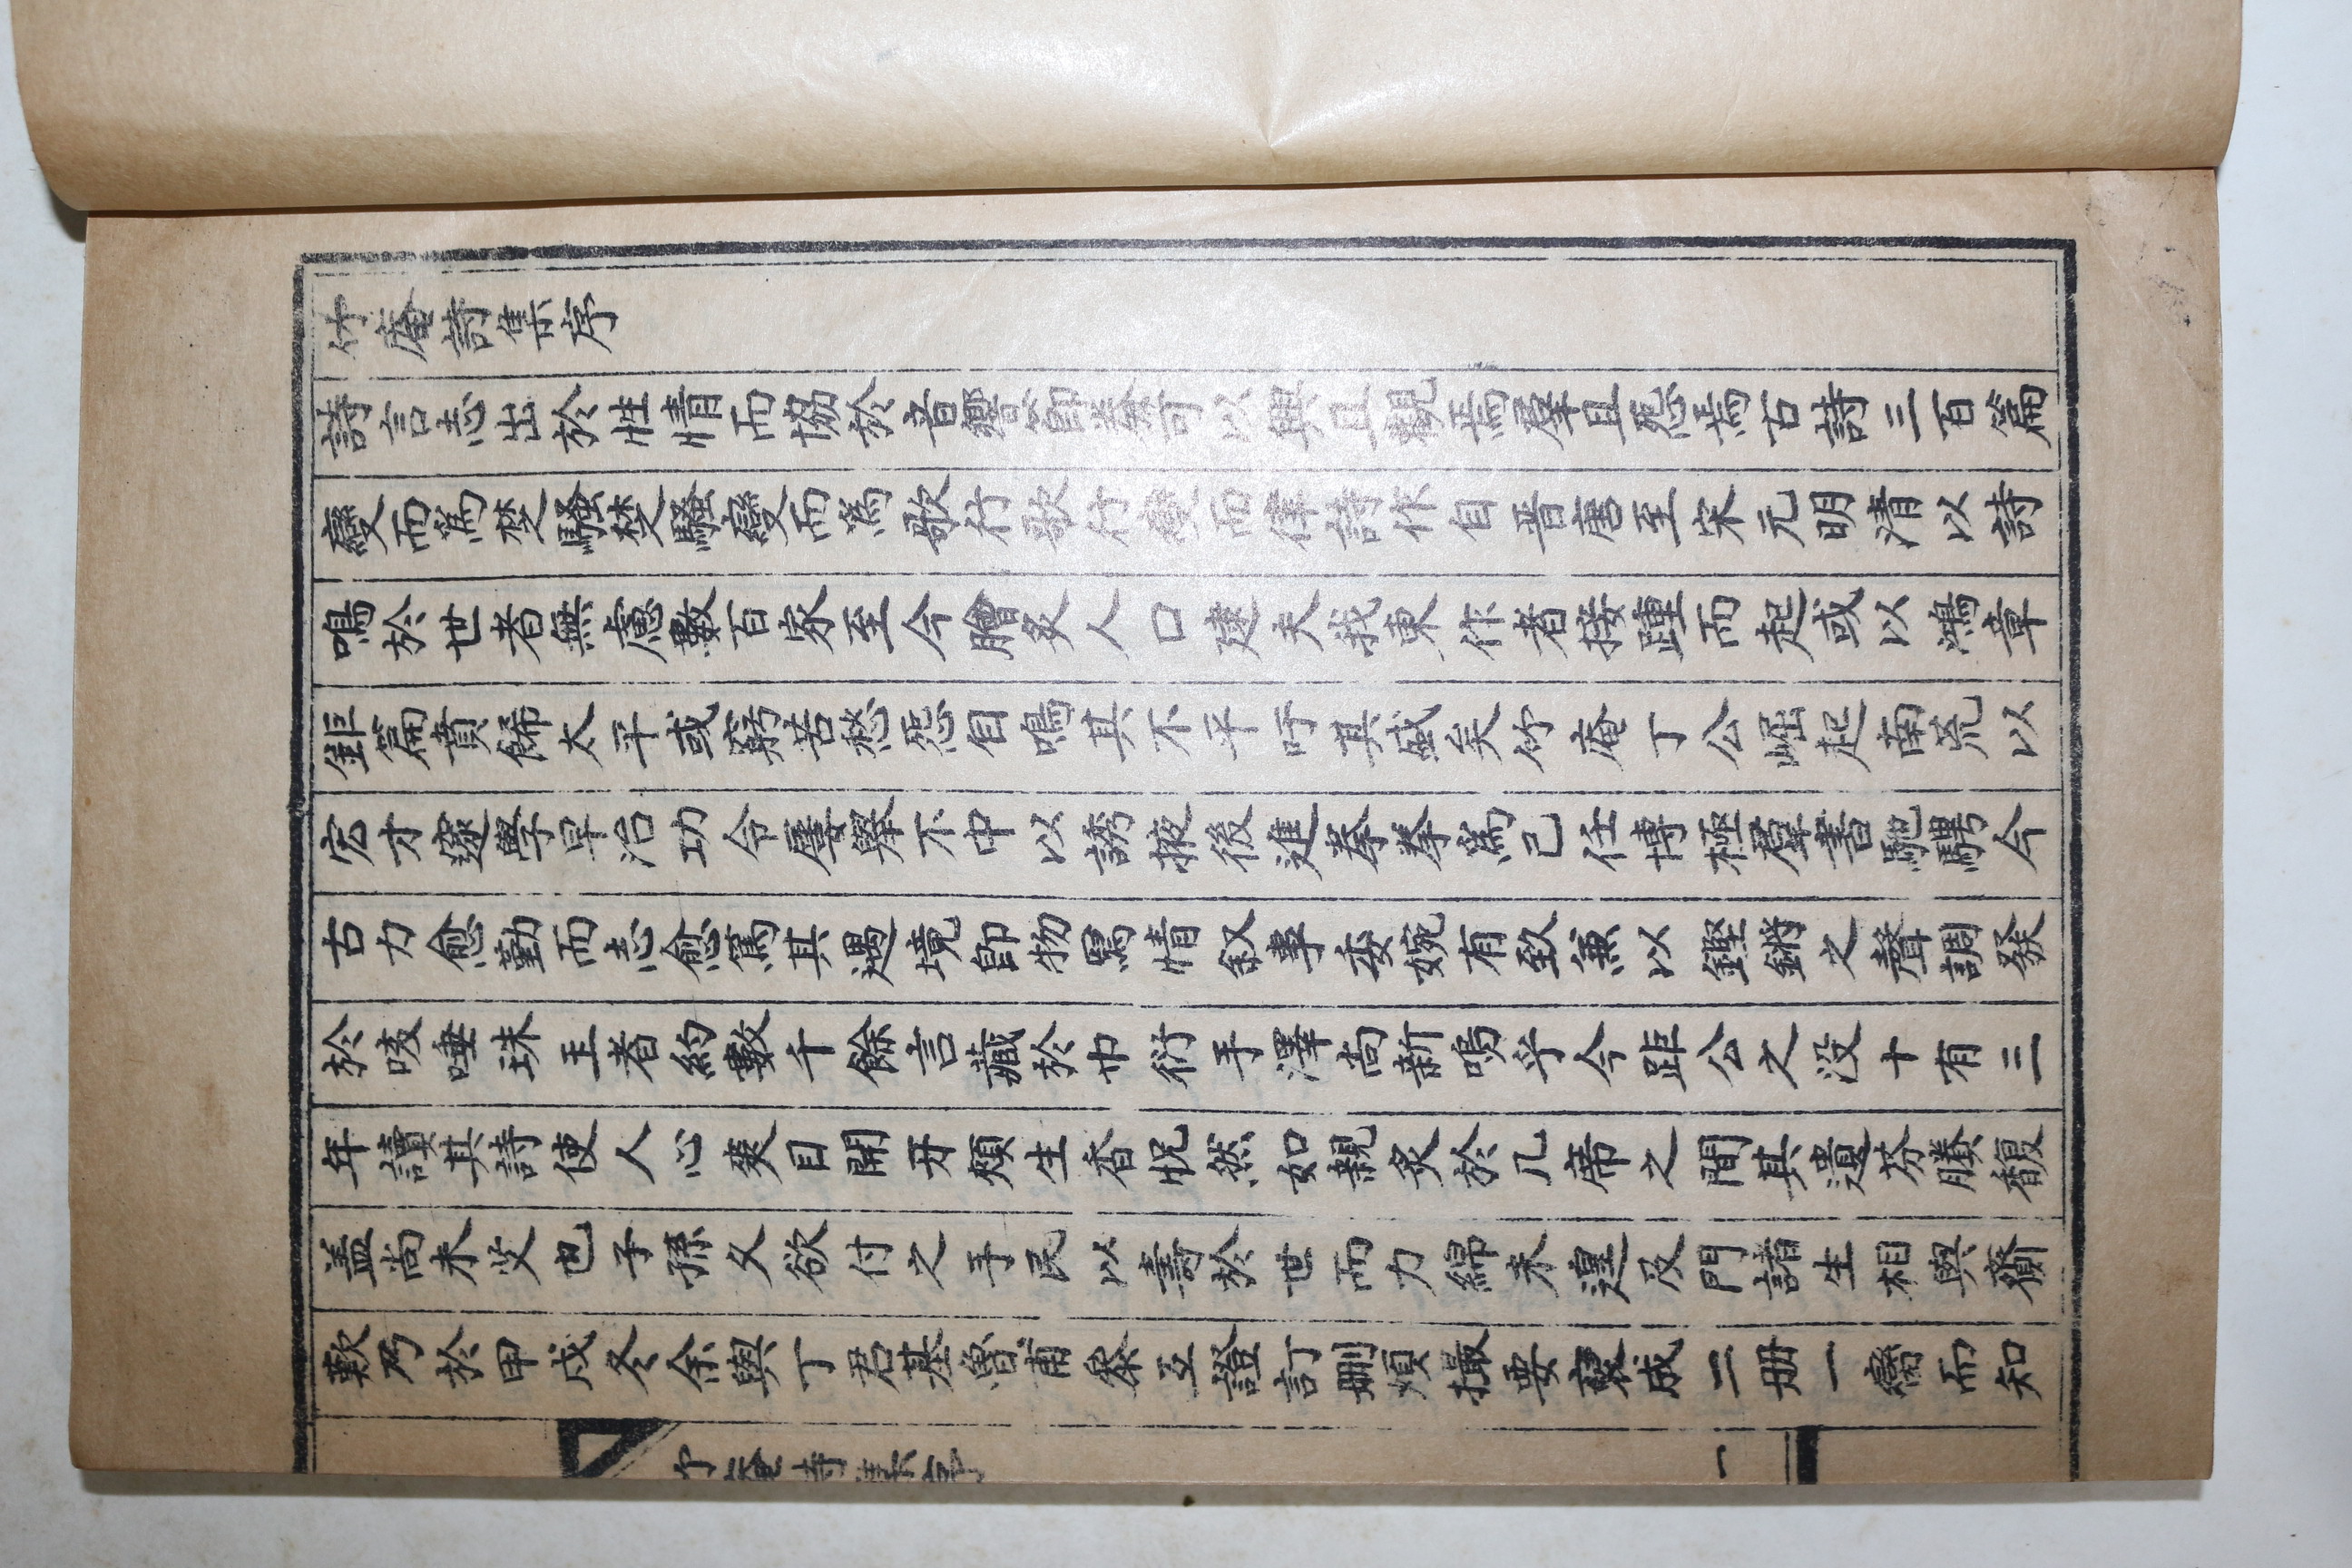 竹庵詩集序
詩言志出於性情而協於音響節奏可以興且觀焉羣且怨焉古詩三百篇
變而爲楚騷楚騷變而爲歌行歌行變而律詩作自晋唐至宋元明清以詩
鳴於世者無慮數百家至今膾炙人口逮夫我東作者接踵而起或以鴻章
鉅篇賁餙太平或窮苦愁怨自鳴其不平吁其盛矣竹庵丁公崛起南荒以
宏才邃學早治功令屢擧不中以誘掖後進拳拳爲己任博極羣書馳騁今
古力愈勤而志愈篤其遇境卽物冩情叙事委婉有致兼以鏗鏘之聲調發
於咳唾珠玉者約數千餘言藏於巾衍手澤尚新嗚乎今距公之没十有三
年讀其詩使人心爽目開牙頰生香怳然如親炙於几席之間其遺芬賸馥
盖尚未艾也子孫久欲付之手民以壽於世而力綿未遑及門諸生相與齎
歎乃於甲戌冬余與丁君基魯甫叅互證訂删煩撮要裒成二册一臠而知
竹庵詩集序
一